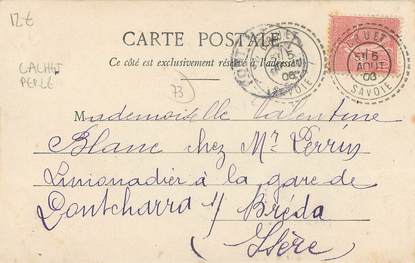 12€
CACHET
PERLÉ
CARTE POSTALE
Ce côté est exclusivement réservé à l'adresse
73
5
AOUT
06
SAVOIE
SAVOIE
Mademoiselle Valentine
Blanc chez Mr Perrin
Limonadier à la gare de
Pontcharra s/ Bréda
(Isère)